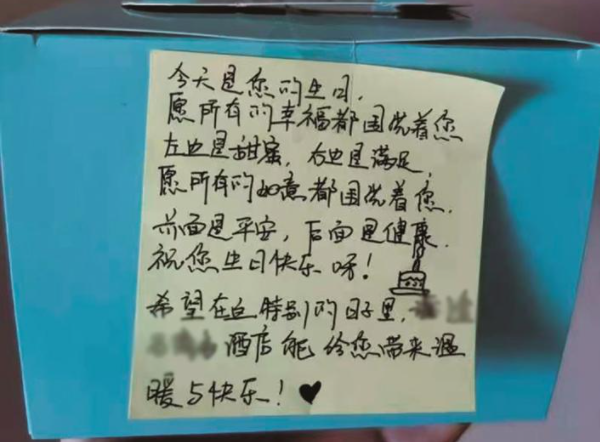 今天是您的生日，
愿所有的幸福都围绕着您
左边是甜蜜，右边是满足，
愿所有的如意都围绕着您，
前面是平安，后面是健康，
祝您生日快乐呀！
希望在这特别的日子里，
酒店能给您带来温
暖与快乐！♥